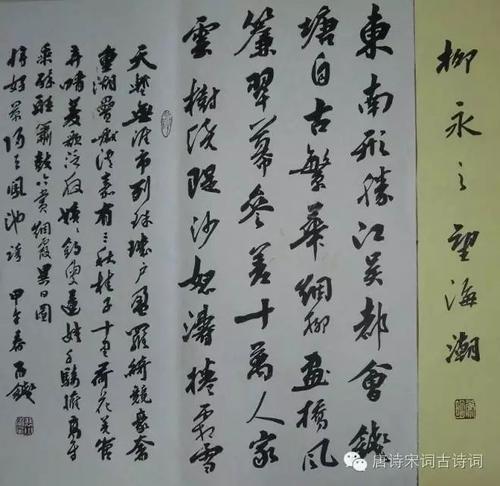 柳永之望海潮
東南形勝江吴都會錢
塘自古繁華烟柳画橋風
簾翠幕參差十萬人家
雲樹绕堤沙怒濤捲霜雪
天塹無涯市列珠璣户盈羅綺競豪奢
重湖疊巘清嘉有三秋桂子十里荷花羌管
弄晴菱歌泛夜嬉嬉釣叟蓮娃千騎擁高牙
乘醉聽簫鼓吟賞烟霞異日圖
將好景歸去鳳池誇 甲午春
唐诗宋词古诗词